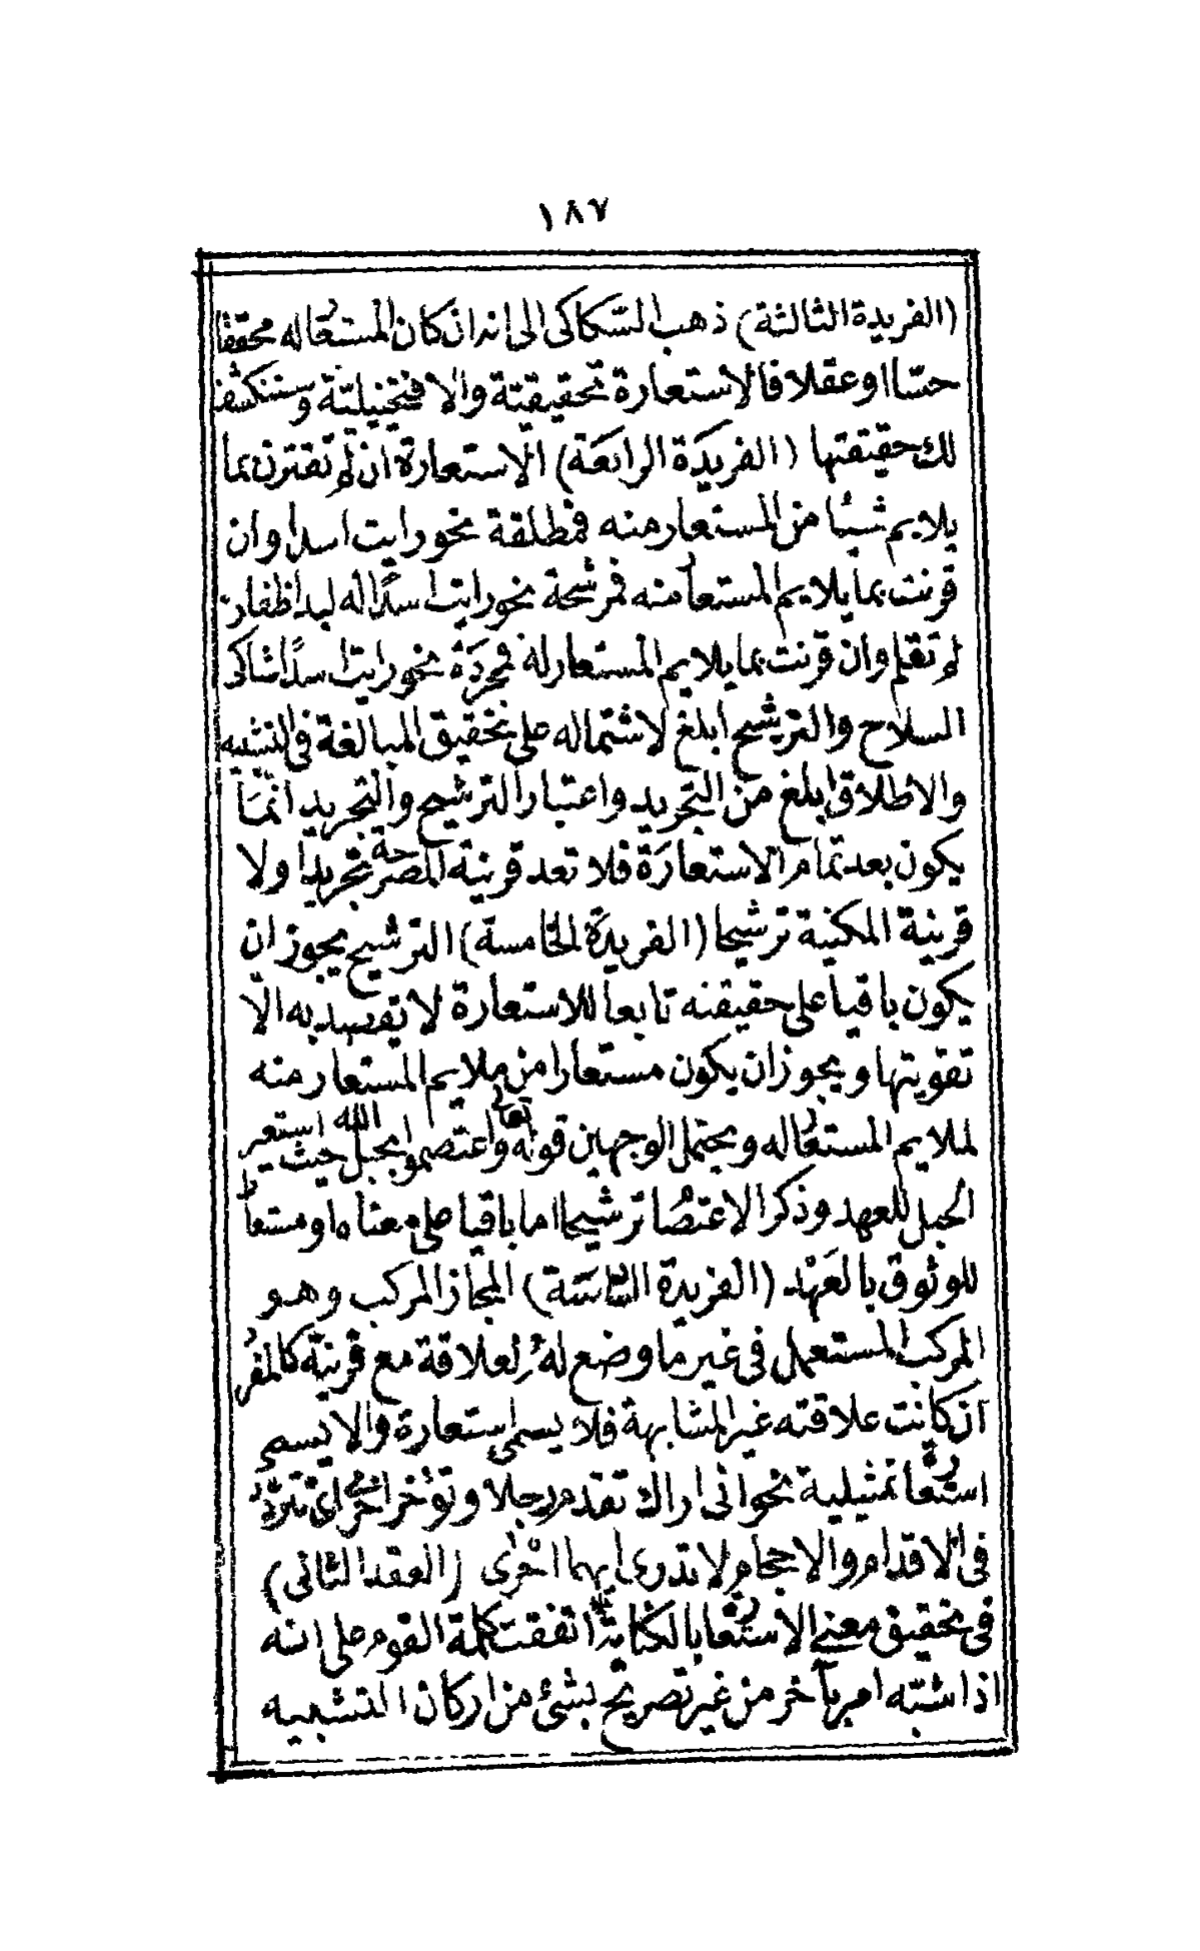 ١٨٧
(الفريدة الثالثة) ذهب السّكاكى الى انه ان كان المستعار له محققا
حسّا او عقلا فالاستعارة تحقيقيّة والا فتخييليّة وستنكشف
لك حقيقتها (الفريدَة الرابعَة) الاستعارة ان لم تقترن بما
يلايم شيئا من المستعار منه فمطلقة نحو رايت اسدا وان
قرنت بما يلايم المستعار منه فمرشحة نحو رايت اسدًا له لبد اظفاره
لم تقلم وان قرنت بما يلايم المستعار له فمجردَة نحو رايت اسدًا شاكى
السلاح والترشيح ابلغ لاشتماله على تحقيق المبالغة فى التشبيه
والاطلاق ابلغ من التجريد واعتبار الترشيح والتجريد انّمَا
يكون بعد تمام الاستعارَة فلا تعد قرينة المصرحة تجريدا ولا
قرينة المكنية ترشيحا (الفريدَة الخامسة) الترشيح يجوز ان
يكون باقيا على حقيقته تابعا للاستعارة لا تقصد به الّا
تقويتها ويجوز ان يكون مستعارا من ملايم المستعار منه
لملايم المستعار له ويحتمل الوجهين قوله تعالى واعتصموا بحبل الله حيث استعير
الحبل للعهد وذكر الاعتصام ترشيحا اما باقيا على معناه او مستعارا
للوثوق بالعَهْد (الفريدة السّادسَة) المجاز المركب وهو
المركب المستعمل فى غير ما وضع لهُ لعلاقة مع قرينة كالمفرد
ان كانت علاقته غير المشابهة فلا يسمى استعارة والا يسمى
استعارة تمثيلية نحو انى اراك تقدم رجلا وتؤخر اخرى اى تتردّد
فى الاقدام والاحجام لا تدرى ايهما احرى (العقد الثانى)
فى تحقيق معنى الاستعارة بالكناية اتفقت كلمة القوم على انه
اذا شبّه امر بآخر من غير تصريح بشئ من اركان التشبيه